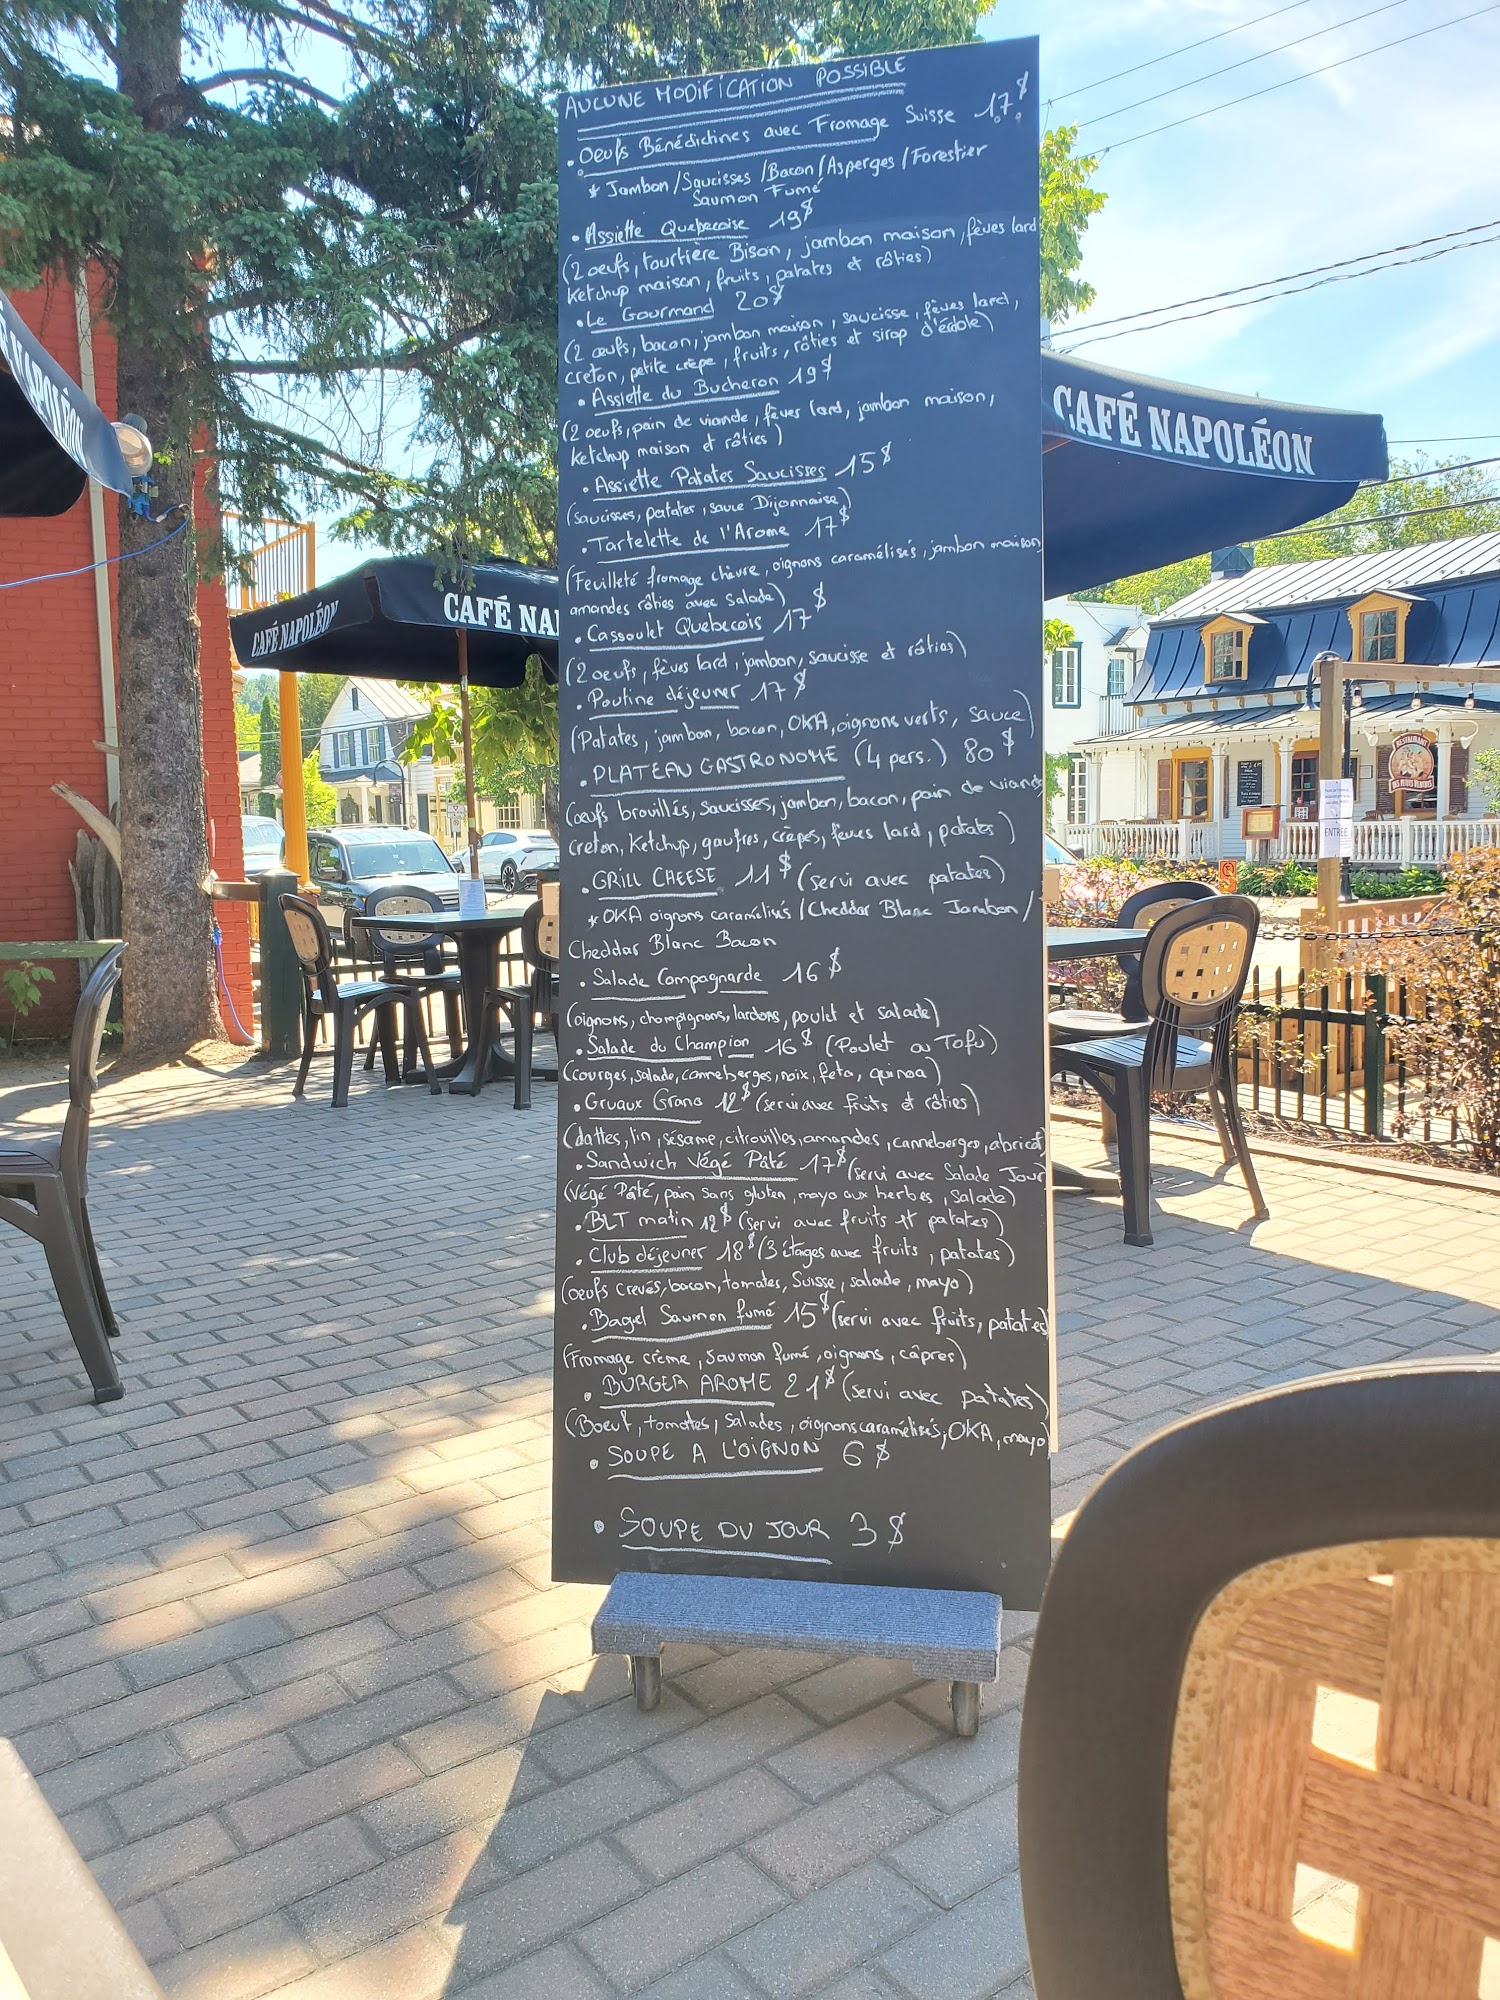 AUCUNE MODIFICATION POSSIBLE
• Oeufs Bénédictines avec Fromage Suisse 17$
* Jambon/Saucisses/Bacon/Asperges/Forestier
Saumon Fumé
• Assiette Quebecoise 19$
(2 oeufs, tourtière Bison, jambon maison, fèves lard
ketchup maison, fruits, patates et rôties)
• Le Gourmand 20$
(2 oeufs, bacon, jambon maison, saucisse, fèves lard,
creton, petite crèpe, fruits, rôties et sirop d'érable)
• Assiette du Bucheron 19$
(2 oeufs, pain de viande, fèves lard, jambon maison,
ketchup maison et rôties)
• Assiette Patates Saucisses 15$
(saucisses, patates, sauce Dijonnaise)
• Tartelette de l'Arome 17$
(Feuilleté fromage chèvre, oignons caramélisés, jambon maison
amandes rôties avec salade)
• Cassoulet Quebecois 17$
(2 oeufs, fèves lard, jambon, saucisse et rôties)
• Poutine déjeuner 17$
(Patates, jambon, bacon, OKA, oignons verts, sauce)
• PLATEAU GASTRONOME (4 pers.) 80$
(oeufs brouillés, saucisses, jambon, bacon, pain de viande,
creton, ketchup, gaufres, crèpes, fèves lard, patates)
• GRILL CHEESE 11$ (servi avec patates)
* OKA oignons caramélisés/Cheddar Blanc Jambon/
Cheddar Blanc Bacon
• Salade Compagnarde 16$
(oignons, champignons, lardons, poulet et salade)
• Salade du Champion 16$ (Poulet ou Tofu)
(courges, salade, canneberges, noix, feta, quinoa)
• Gruaux Grano 12$ (servi avec fruits et rôties)
(dattes, lin, sésame, citrouilles, amandes, canneberges, abricot)
• Sandwich Végé Pâté 17$ (servi avec Salade Jour)
(Végé Pâté, pain sans gluten, mayo aux herbes, salade)
• BLT matin 12$ (servi avec fruits et patates)
• Club déjeuner 18$ (3 étages avec fruits, patates)
(oeufs crevés, bacon, tomates, Suisse, salade, mayo)
• Bagel Saumon fumé 15$ (servi avec fruits, patates)
(Fromage crème, saumon fumé, oignons, câpres)
• BURGER AROME 21$ (servi avec patates)
(Boeuf, tomates, salades, oignons caramélisés, OKA, mayo)
• SOUPE A L'OIGNON 6$
• SOUPE DU JOUR 3$
CAFÉ NAPOLÉON
CAFÉ NAPOLÉON
CAFÉ NA
NAPOLÉON
RESTAURANT
ENTRÉE